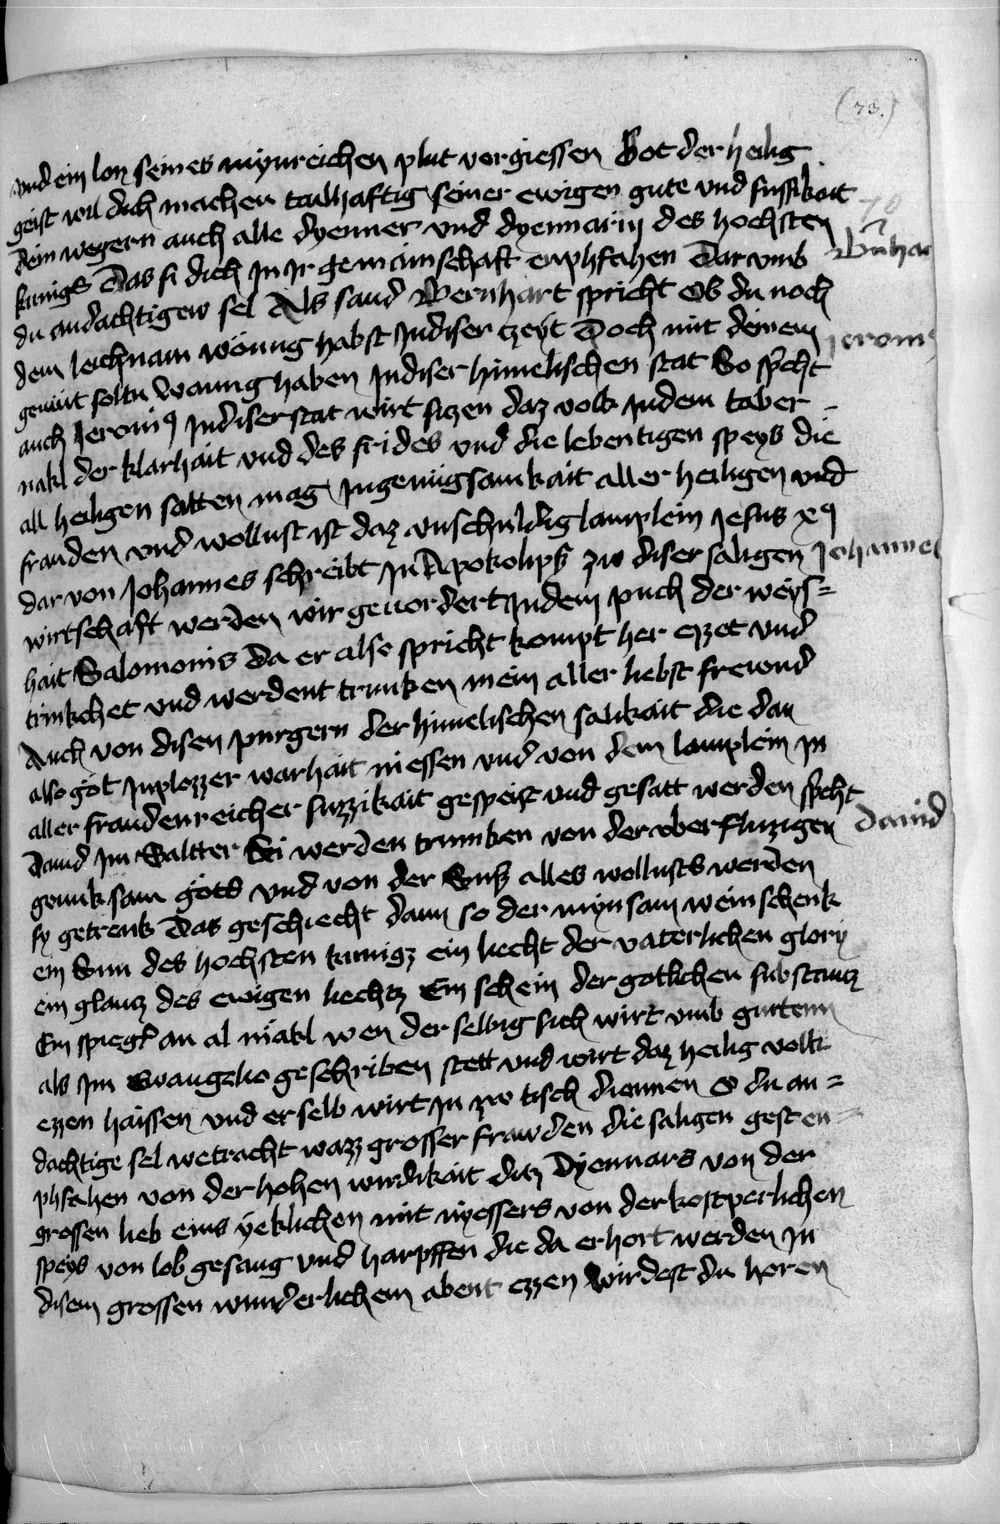 (73.)
vnd ein lon seines mynnreichen plut vorgiessen Got der heilig
geist will dich machen tailhaftig seiner ewigen gute vnd sussikait
dein wegern auch alle dyenner vnd dyennariij des hochsten
70
kunigs Das si dich jn jr gemainschaft enphfahen Dar vmb
Bernhar
du andachtigew sel Als sand Bernhart spricht Ob du noch
dem leichnam wonung habst jndiser czeyt Doch mit deinem
Jeronig
gemüt soltu wonung haben jndiser himelischen stat So spricht
auch Jeronig jndiser stat wirt siczen daz volk jndem taber-
nakl der klarhait vnd des frides vnd die lebentigen speys die
all heiligen satten mag jngenügsamkait aller heiligen vnd
frauden vnd wollust ist daz vnschuldig lamplein jesus xpq
dar von johannes schreibt jn Apokolips zw diser saligen
Johannes
wirtschaft werden wir geuordert jndem puch der weys=
hait Salomonis da er also spricht kompt her ezzet vnd
trinkchet vnd werdent trunken mein aller liebst frewnd
Auch von disen purgern der himelischen salikait die dan
also got jnplozzer warhait niessen vnd von dem lamplein jn
aller fraudenreicher suzzikait gespeist vnd gesatt werden spricht
Dauid
Dauid jm Saltter Si werden trunken von der vberfluzigen
genuksam gots vnd von der Suß alles wollusts werden
sy getrenk Das geschiecht dann so der mynsam weinschenk
ein Sun des hochsten kunigz ein liecht der vaterlichen glory
ein glancz des ewigen liechtz Ein schein der gotlichen substancz
Ein spiegl an al makl wen der selbig sich wirt vmb gurtenn
als jm Ewangelio geschriben stett vnd wirt daz heilig volk
ezzen haissen vnd er selb wirt jn zw tisch diennen O du an=
dachtige sel wetracht wazz grosser frawden die saligen gest en=
phfahen von der hohen wirdikait ditz Dyennars von der
grossen lieb eins yeklichen mit nyessers von der kostperlichen
speys von lob gesang vnd harpffen die da erhort werden jn
disem grossen wunderlichem abent ezzen Wirdest du horen